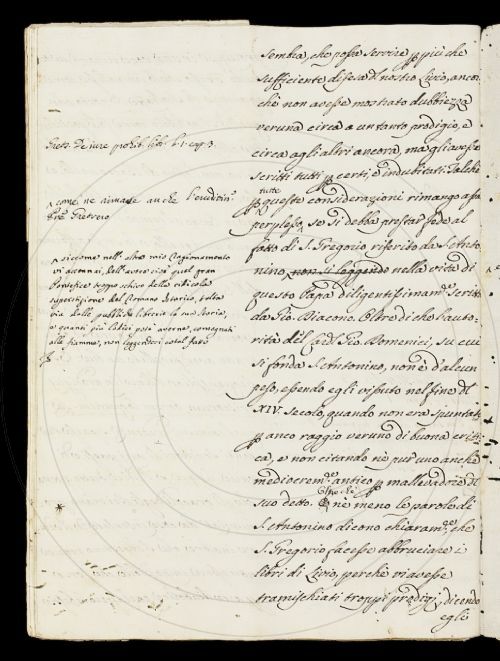 sembra, che possa servire p più che
sufficiente difesa al nostro Livio, anco-
chè non avesse mostrato dubbiezza
veruna circa a un tanto prodigio, e
circa agli altri ancora, ma gli avesse
scritti tutti p certi, e indubitati. Talchè
p tutte queste considerazioni rimango assai
perplesso, se si debba prestar fede al
fatto di S. Gregorio riferito da S. Anto-
nino, non si leggendo nella vita di
questo Papa diligentissimam.te scritta
da Gio. Diacono. Oltre di che l'auto-
rità del Card. Gio. Domenici, su cui
si fonda S. Antonino, non è d'alcun
peso, essendo egli vissuto nel fine del
XIV. secolo, quando non era spuntato
p anco raggio veruno di buona criti-
ca, e non citando nè pur uno anche
mediocrem.te antico p mallevadore del
suo detto. Oltre che nè meno le parole di
S. Antonino dicono chiaram.te, che
S. Gregorio facesse abbruciare i
libri di Livio, perchè vi avesse
tramischiati troppi prodigi, dicendo
egli
Grets. De iure prohib. libr. l. 1. cap. 3.
come ne rimase anche
Gretsero
siccome nell' altro mio Ragionamento
vi accennai, dell' aver così quel gran
Pontefice troppo schivo della ridicola
superstizione del Romano Istorico, tolta
via dalle pubbliche librerie la sua Storia,
e quanti più Codici potè averne, consegnati
alle fiamme, non leggendosi cotal fatto